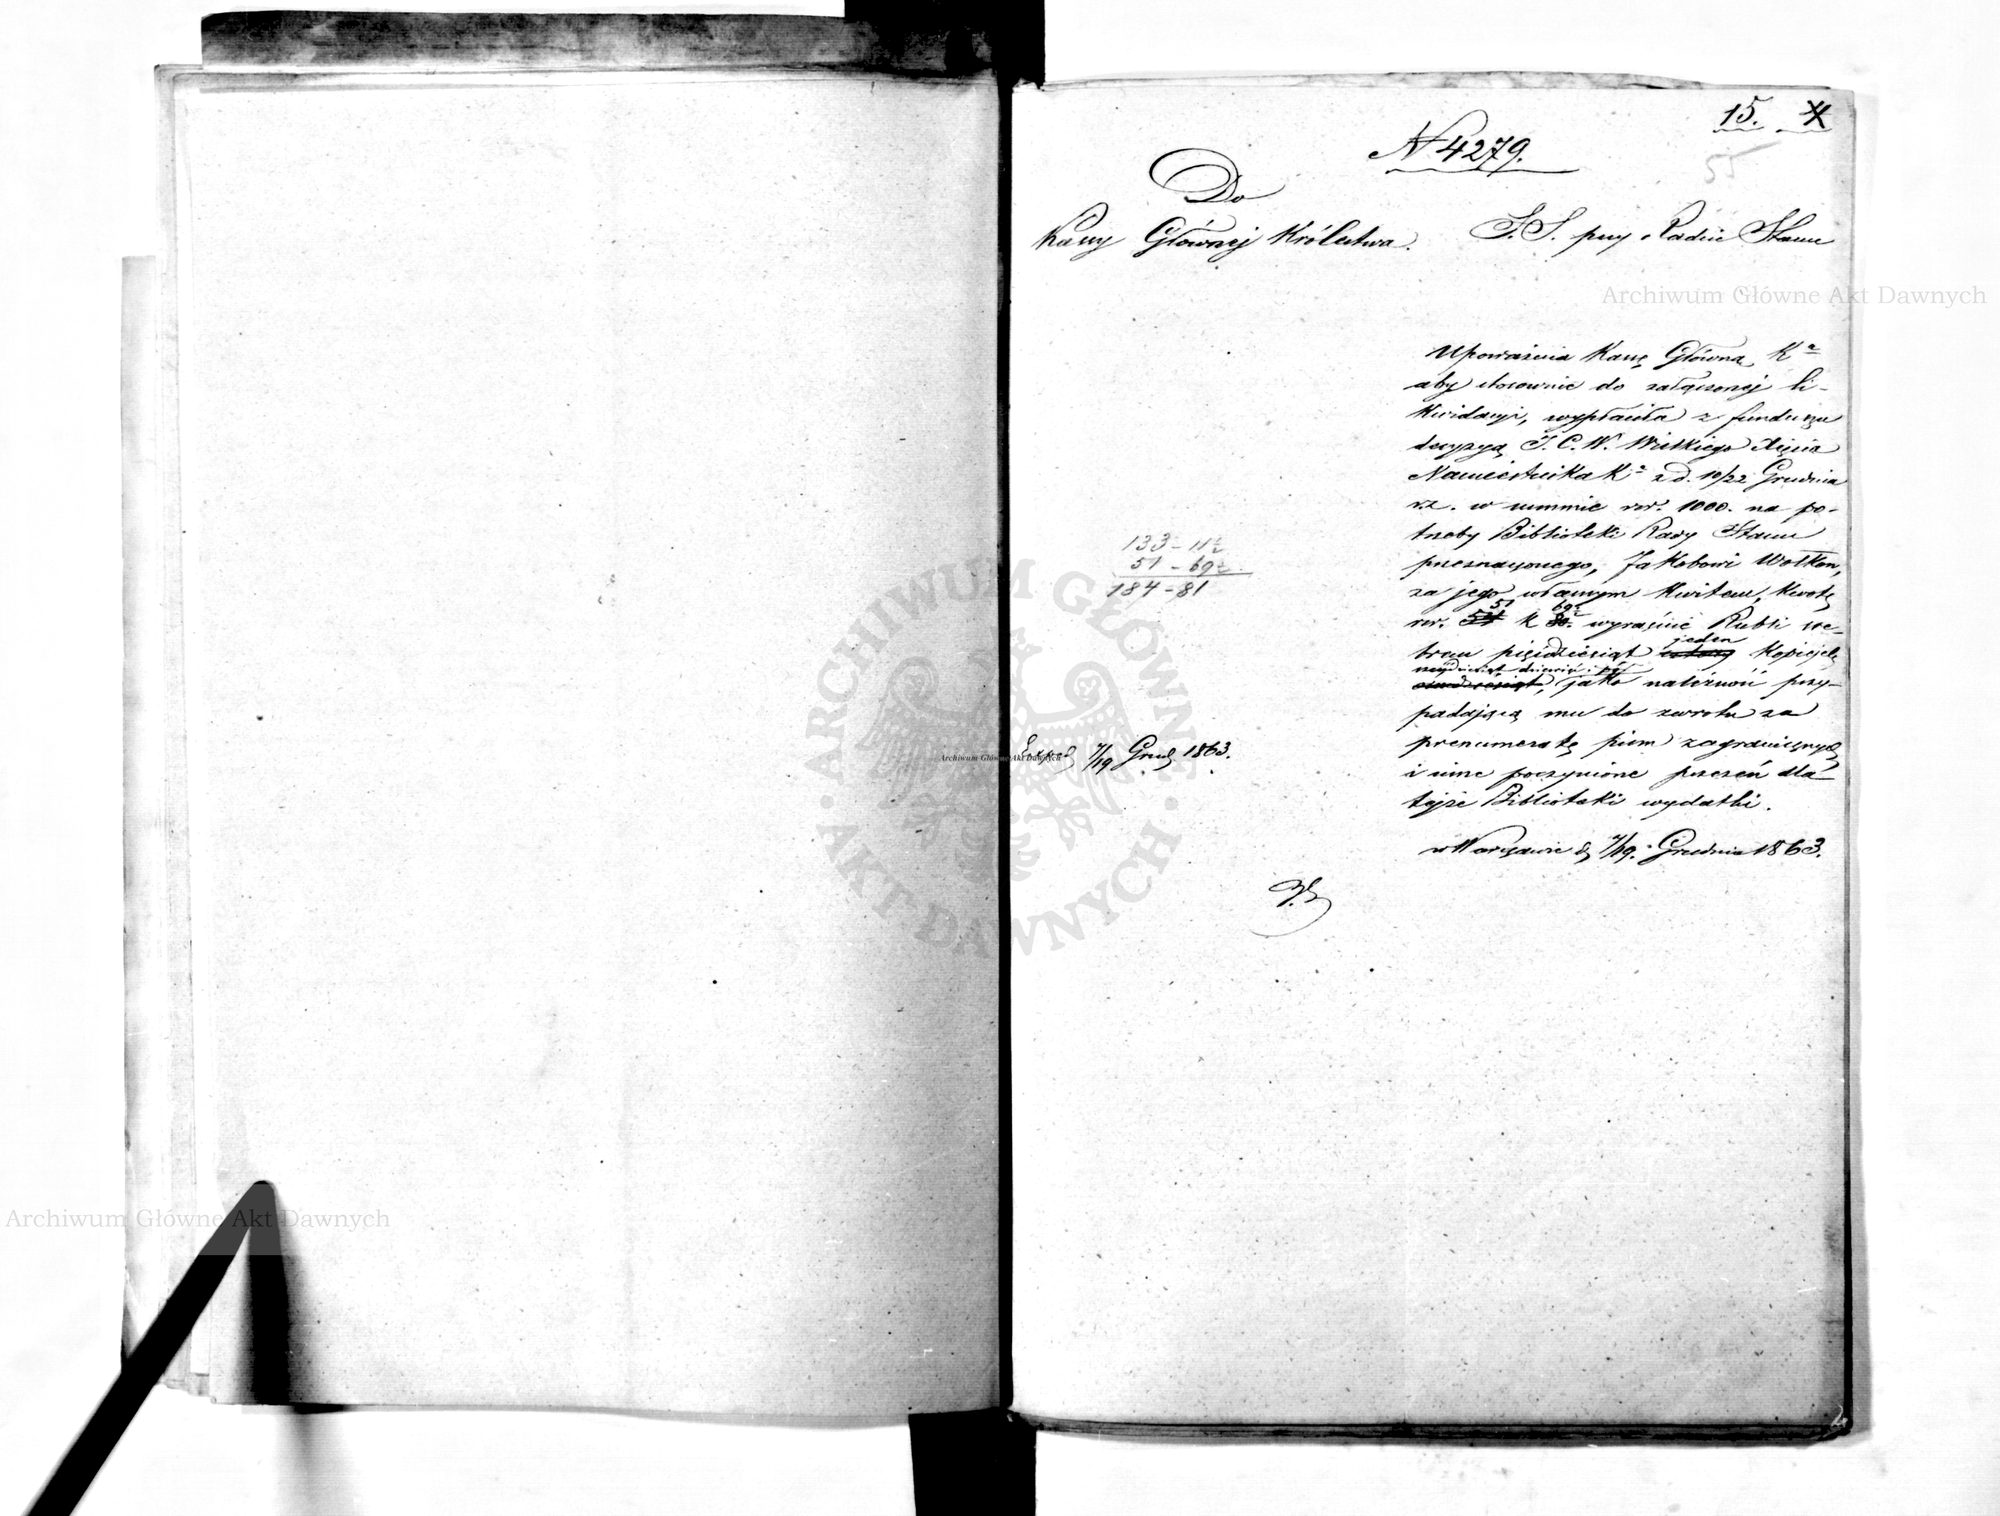 15. 4
55
N 4279.
Do
Kassy Głównej Królestwa.
S. S. przy Radzie Stanu
Upoważnia Kassę Główną Kª
aby stosownie do załączonej li-
kwidacyi, wypłaciła z funduszu
decyzyą J. C. W. Wielkiego Xięcia
Namiestnika Kª z d. 10/22 Grudnia
r.z. w summie rsr. 1000. na po-
trzeby Biblioteki Rady Stanu
przeznaczonego, Jakobowi Wołkow,
za jego własnym kwitem, kwotę
51 69½
rsr. k wyraźnie Rubli sre-
jeden
brem pięćdziesiąt Kopiejek
sześćdziesiąt dziewięć i pół
jako należność przy-
padającą mu do zwrotu za
prenumeratę pism zagranicznych
i inne poczynione przezeń dla
tejże Biblioteki wydatki.
w Warszawie d. 7/19. Grudnia 1863.
133 - 11½
51 - 69½
184 - 81
Exped 7/19 Grud 1863.
Archiwum Główne Akt Dawnych
Archiwum Główne Akt Dawnych
Archiwum Główne Akt Dawnych
ARCHIWUM GŁÓWNE
AKT DAWNYCH